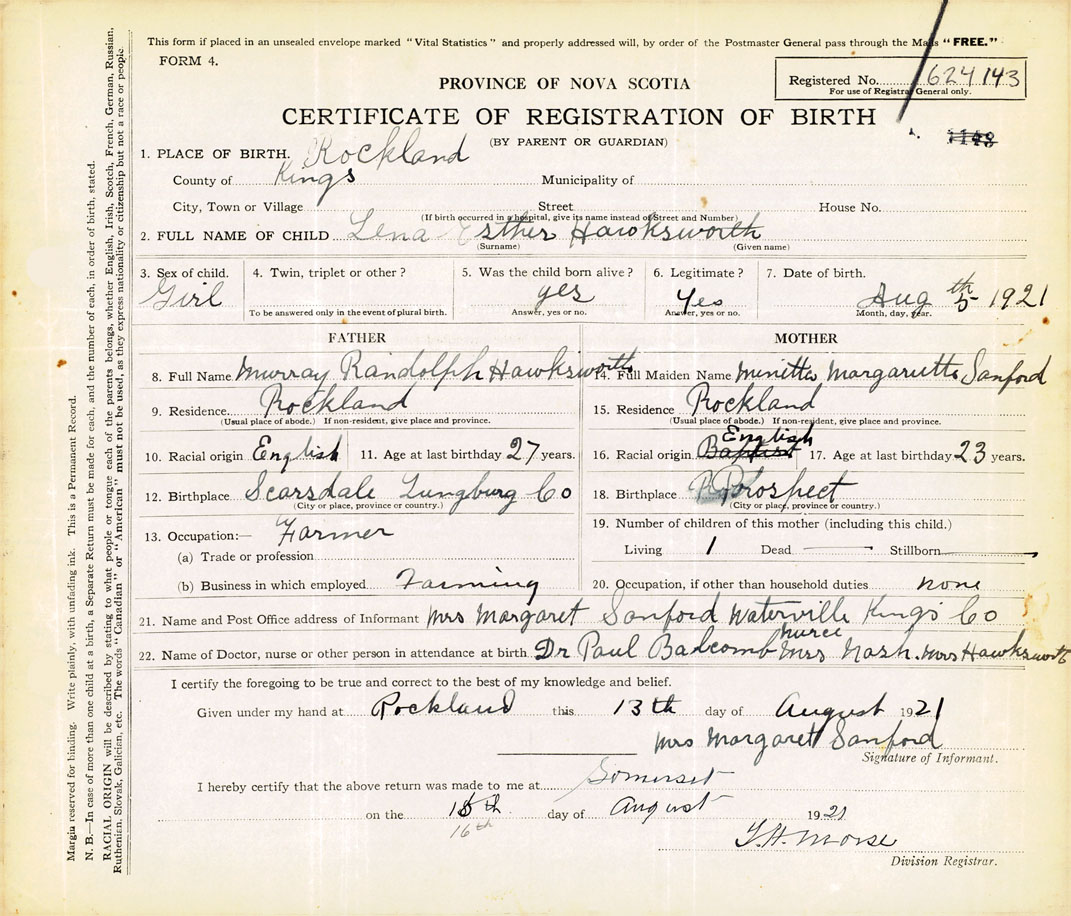 This form if placed in an unsealed envelope marked "Vital Statistics" and properly addressed will, by order of the Postmaster General pass through the Mails "FREE."
FORM 4.
Registered No. 624143
For use of Registrar General only.
PROVINCE OF NOVA SCOTIA
CERTIFICATE OF REGISTRATION OF BIRTH
(BY PARENT OR GUARDIAN)
1. PLACE OF BIRTH. Rockland
County of Kings Municipality of
City, Town or Village Street House No.
(If birth occurred in a hospital, give its name instead of Street and Number)
2. FULL NAME OF CHILD Lena Esther Hawksworth
(Surname) (Given name)
3. Sex of child. 4. Twin, triplet or other? 5. Was the child born alive? 6. Legitimate? 7. Date of birth.
Girl yes Yes Aug 5th 1921
To be answered only in the event of plural birth. Answer, yes or no. Answer, yes or no. Month, day, year.
FATHER MOTHER
8. Full Name Murray Randolph Hawksworth 14. Full Maiden Name Minitta Margarutta Sanford
9. Residence Rockland 15. Residence Rockland
(Usual place of abode.) If non-resident, give place and province. (Usual place of abode.) If non-resident, give place and province.
10. Racial origin English 11. Age at last birthday 27 years. 16. Racial origin Baptist English 17. Age at last birthday 23 years.
12. Birthplace Scarsdale Lungburg Co 18. Birthplace Prospect
(City or place, province or country.) (City or place, province or country.)
13. Occupation:— Farmer 19. Number of children of this mother (including this child.)
(a) Trade or profession Living 1 Dead — Stillborn —
(b) Business in which employed Farming 20. Occupation, if other than household duties none
21. Name and Post Office address of Informant Mrs Margaret Sanford Waterville Kings Co
22. Name of Doctor, nurse or other person in attendance at birth Dr Paul Balcomb nurce Mrs Nash. Mrs Hawksworth
I certify the foregoing to be true and correct to the best of my knowledge and belief.
Given under my hand at Rockland this 13th day of August 1921
Mrs Margaret Sanford
Signature of Informant.
I hereby certify that the above return was made to me at Somerset
on the day of August 1921
16th
Morse
Division Registrar.
Margin reserved for binding. Write plainly, with unfading ink. This is a Permanent Record.
N. B.—In case of more than one child at a birth, a Separate Return must be made for each, and the number of each, in order of birth, stated.
RACIAL ORIGIN will be described by stating to what people or tongue each of the parents belongs, whether English, Irish, Scotch, French, German, Russian,
Ruthenian, Slovak, Galician, etc. The words "Canadian" or "American" must not be used, as they express nationality or citizenship but not a race or people.